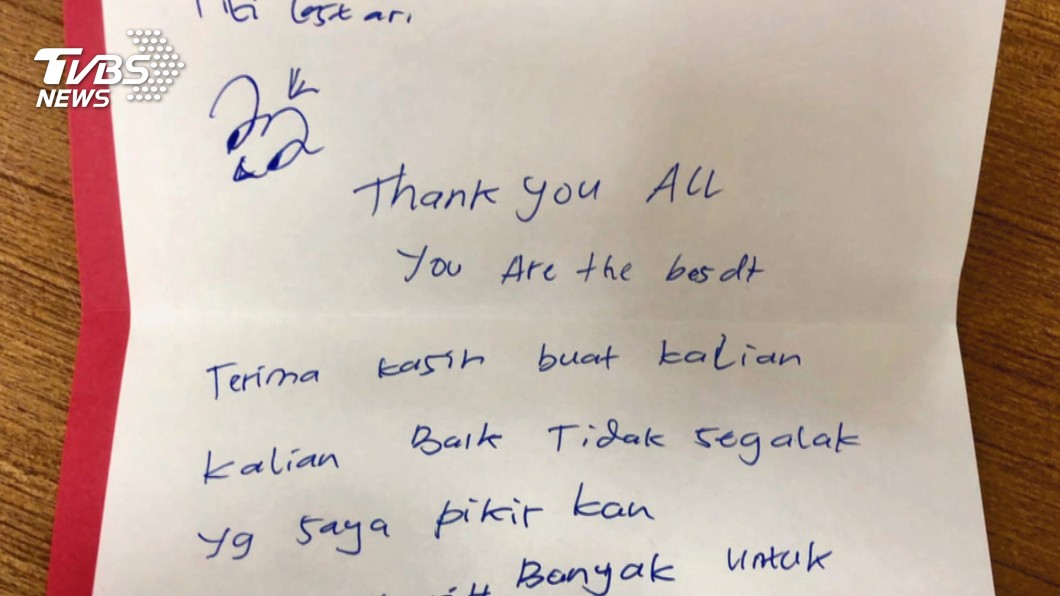 lestari
TVBS
NEWS
Thank you All
You Are the besdt
Terima kasih buat kalian
kalian Baik Tidak segalak
yg saya pikir kan
Banyak untuk